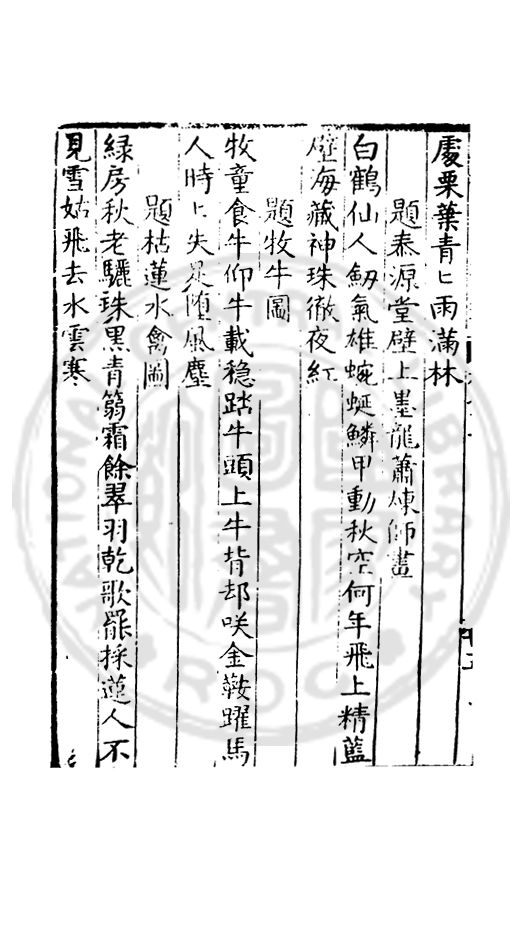 處栗葉青〻雨滿林
題泰源堂壁上墨龍蕭煉師畫
白鶴仙人劔氣雄蜿蜒鱗甲動秋空何年飛上精藍
壁海藏神珠徹夜紅
題牧牛圖
牧童食牛仰牛載穏踏牛頭上牛背却咲金鞍躍馬
人時〻失𠩄墮風塵
題枯蓮水禽圖
緑房秋老驪珠黒青篛霜餘翠羽乾歌罷採蓮人不
見雪姑飛去水雲寒